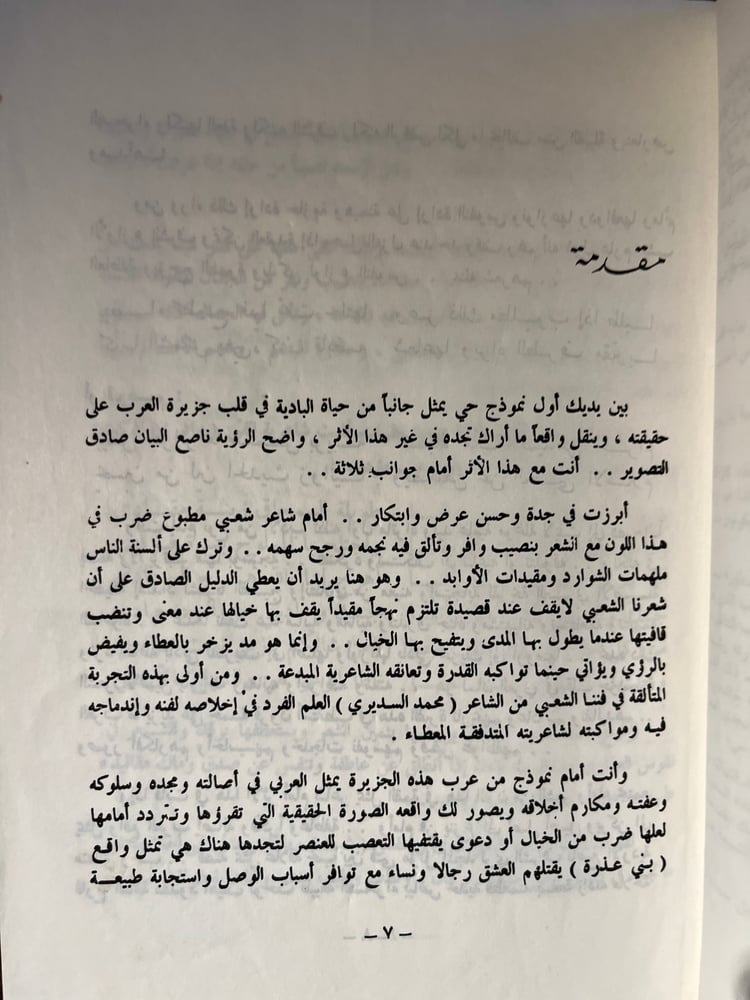 مقدمة
بين يديك أول نموذج حي يمثل جانباً من حياة البادية في قلب جزيرة العرب على
حقيقته ، وينقل واقعاً ما أراك تجده في غير هذا الأثر ، واضح الرؤية ناصع البيان صادق
التصوير . . أنت مع هذا الأثر أمام جوانب ثلاثة . .
أبرزت في جدة وحسن عرض وابتكار . . أمام شاعر شعبي مطبوع ضرب في
هذا اللون مع الشعر بنصيب وافر وتألق فيه نجمه ورجح سهمه . . وترك على ألسنة الناس
ملهمات الشوارد ومقيدات الأوابد . . وهو هنا يريد أن يعطي الدليل الصادق على أن
شعرنا الشعبي لايقف عند قصيدة تلتزم نهجاً مقيداً يقف بها خيالها عند معنى وتنضب
قافيتها عندما يطول بها المدى ويتفيح بها الخيال . . وإنما هو مد يزخر بالعطاء ويفيض
بالرؤي ويؤاتي حينما تواكبه القدرة وتعانقه الشاعرية المبدعة . . ومن أولى بهذه التجربة
المتألقة في فننا الشعبي من الشاعر ( محمد السديري ) العلم الفرد في إخلاصه لفنه وإندماجه
فيه ومواكبته لشاعريته المتدفقة المعطاء .
وأنت أمام نموذج من عرب هذه الجزيرة يمثل العربي في أصالته ومجده وسلوكه
وعفته ومكارم أخلاقه ويصور لك واقعه الصورة الحقيقية التي تقرؤها وتتردد أمامها
لعلها ضرب من الخيال أو دعوى يقتفيها التعصب للعنصر لتجدها هناك هي تمثل واقع
( بني عذرة ) يقتلهم العشق رجالا ونساء مع توافر أسباب الوصل واستجابة طبيعة
– ٧ –